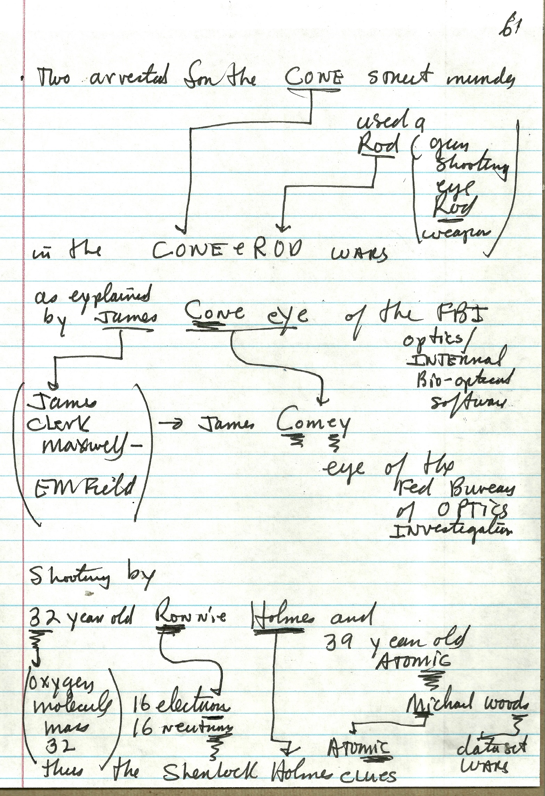 61
. Two arrested for the CONE street murder
used a
Rod (gun
shooting
eye
Rod
weapon)
in the CONE & ROD WARS
as explained
by James Cone eye of the FBI
optics/
INTERNAL
Bio-optical
software
(James
Clerk
Maxwell-
EM Field) → James Comey
eye of the
Fed Bureau
of OPTICS
INVESTIGATION
Shooting by
32 year old Ronnie Holmes and
39 year old
ATOMIC
Michael Woods
(oxygen
molecule
mass
32)
16 electron
16 neutrons
ATOMIC
data set
WARS
thus the Sherlock Holmes clues